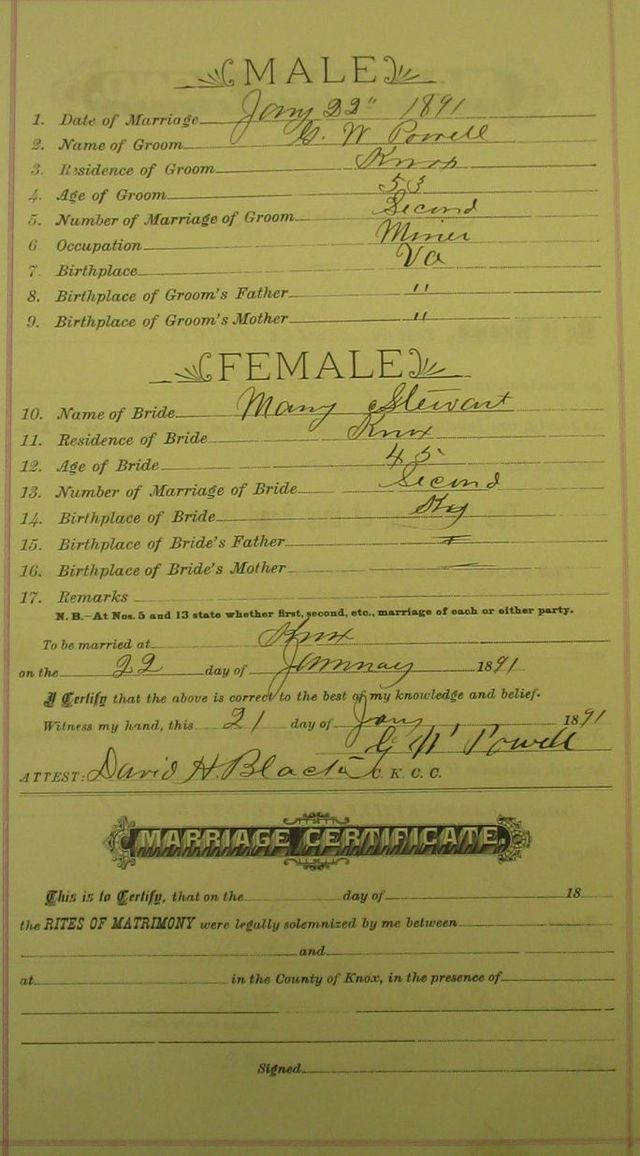 MALE
1. Date of Marriage Jany 22" 1891
2. Name of Groom G. W Powell
3. Residence of Groom Knox
4. Age of Groom 53
5. Number of Marriage of Groom Second
6 Occupation Miner
7. Birthplace Va
8. Birthplace of Groom's Father "
9. Birthplace of Groom's Mother "
FEMALE
10. Name of Bride Mary Stewart
11. Residence of Bride Knox
12. Age of Bride 45
13. Number of Marriage of Bride Second
14. Birthplace of Bride Ky
15. Birthplace of Bride's Father
16. Birthplace of Bride's Mother
17. Remarks
N. B.—At Nos. 5 and 13 state whether first, second, etc., marriage of each or either party.
To be married at Knox
on the 22 day of January 1891
I Certify that the above is correct to the best of my knowledge and belief.
Witness my hand, this 21 day of Jany 1891
G W Powell
ATTEST: David H. Black C. K. C. C.
MARRIAGE CERTIFICATE.
This is to Certify, that on the day of 18
the RITES OF MATRIMONY were legally solemnized by me between
and
at in the County of Knox, in the presence of
Signed